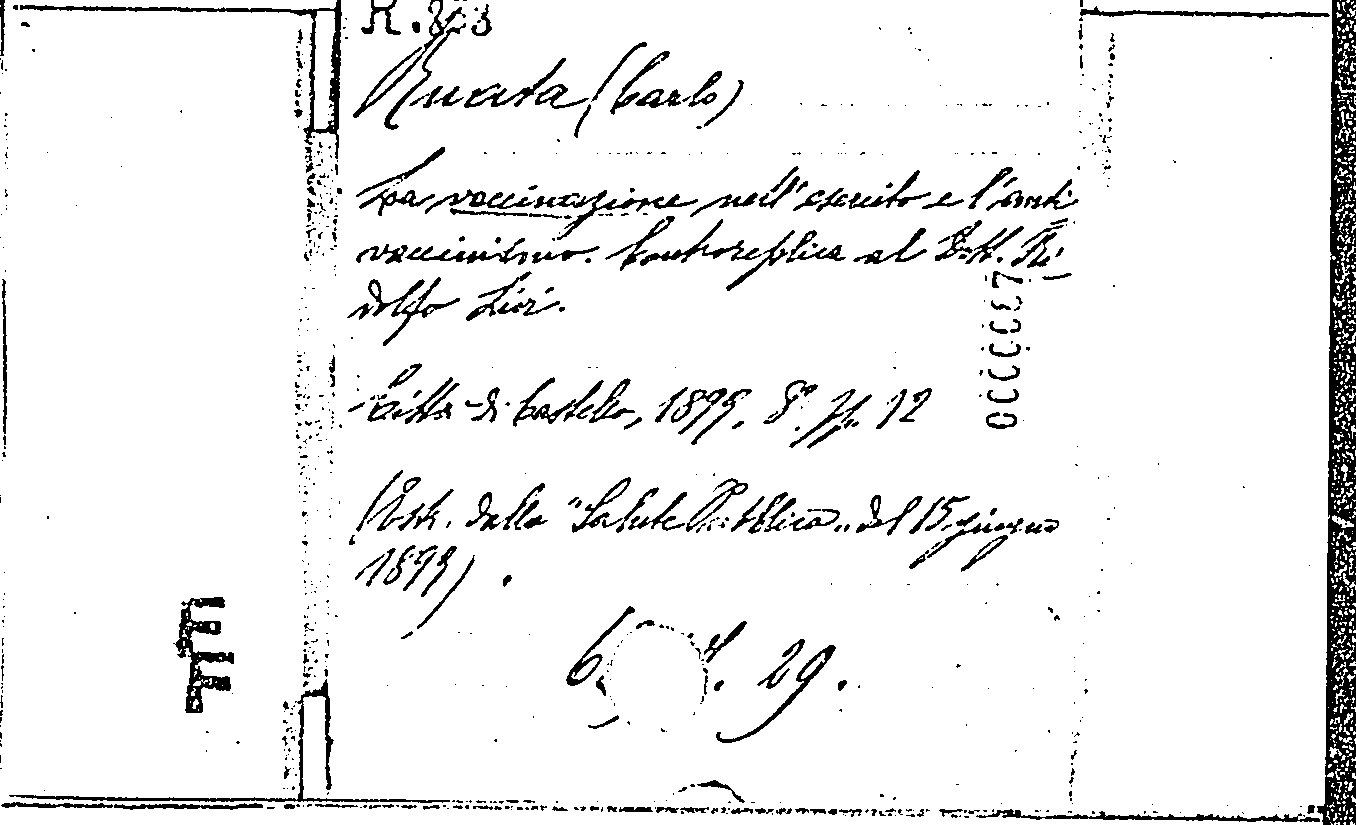 Ruata (Carlo)
La vaccinazione nell'esercito e l'anti
vaccinismo. Controreplica al Dott. Ri
dolfo Livi.
Città di Castello, 1899. 8° pp. 12
(Estr. dalla "Salute Pubblica" del 15 giugno
1899).
29.
0000007